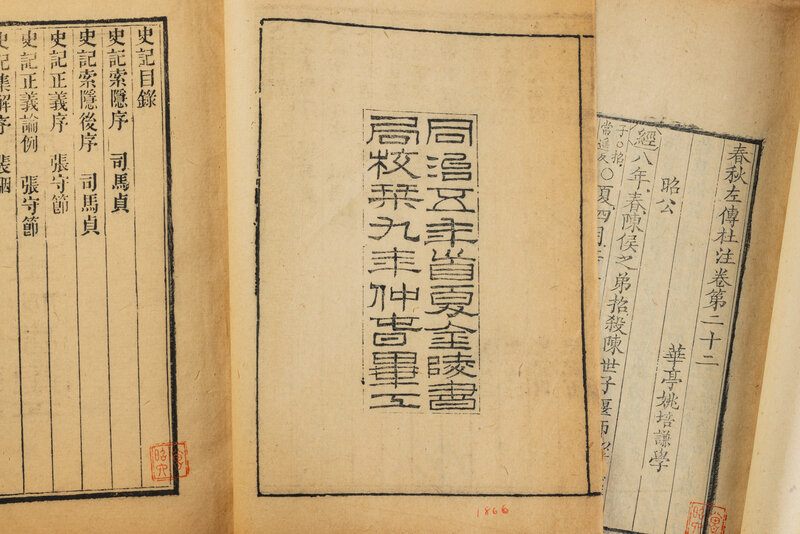 春秋左傳杜注卷第二十二
華亭姚培謙學
昭公
經八年春陳侯之弟招殺陳世子偃師
子○招
○夏四月
同治五年首夏金陵書
局校栞九年仲春畢工
1866
史記目錄
史記索隱序 司馬貞
史記索隱後序 司馬貞
史記正義序 張守節
史記正義論例 張守節
史記集解序 裴駰